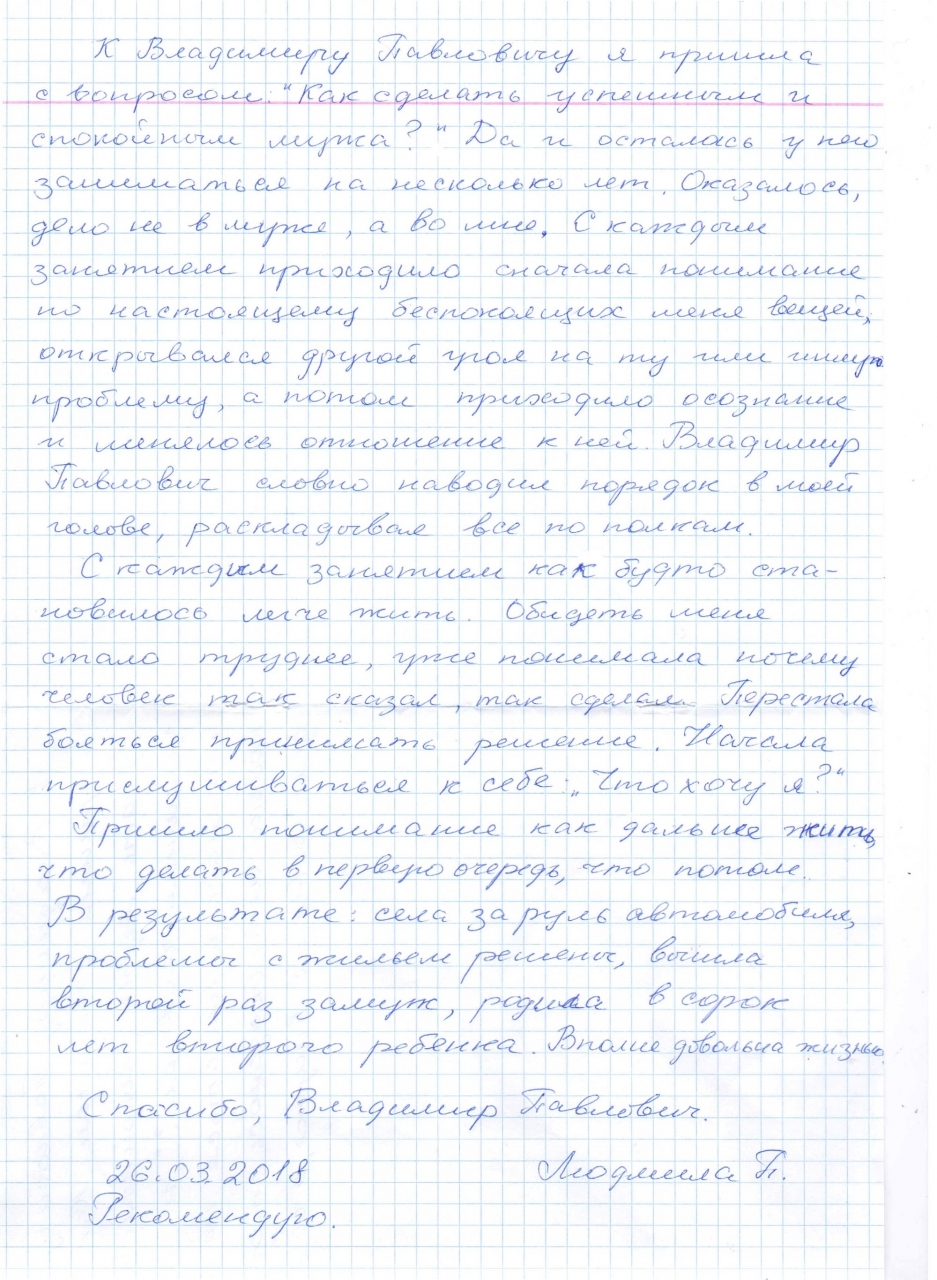 К Владимиру Павловичу я пришла
с вопросом: "Как сделать успешным и
спокойным мужа?" Да и осталась у него
заниматься на несколько лет. Оказалось,
дело не в муже, а во мне. С каждым
занятием приходило сначала понимание
по настоящему беспокоящих меня вещей,
открывался другой угол на ту или иную
проблему, а потом приходило осознание
и менялось отношение к ней. Владимир
Павлович словно наводил порядок в моей
голове, раскладывая все по полкам.
С каждым занятием как будто ста-
новилось легче жить. Обидеть меня
стало труднее, уже понимала почему
человек так сказал, так сделал. Перестала
бояться принимать решение. Начала
прислушиваться к себе: „Что хочу я?"
Пришло понимание как дальше жить,
что делать в первую очередь, что потом.
В результате: села за руль автомобиля,
проблемы с жильем решены, вышла
второй раз замуж, родила в сорок
лет второго ребенка. Вполне довольна жизнью.
Спасибо, Владимир Павлович.
26.03.2018 Людмила П.
Рекомендую.